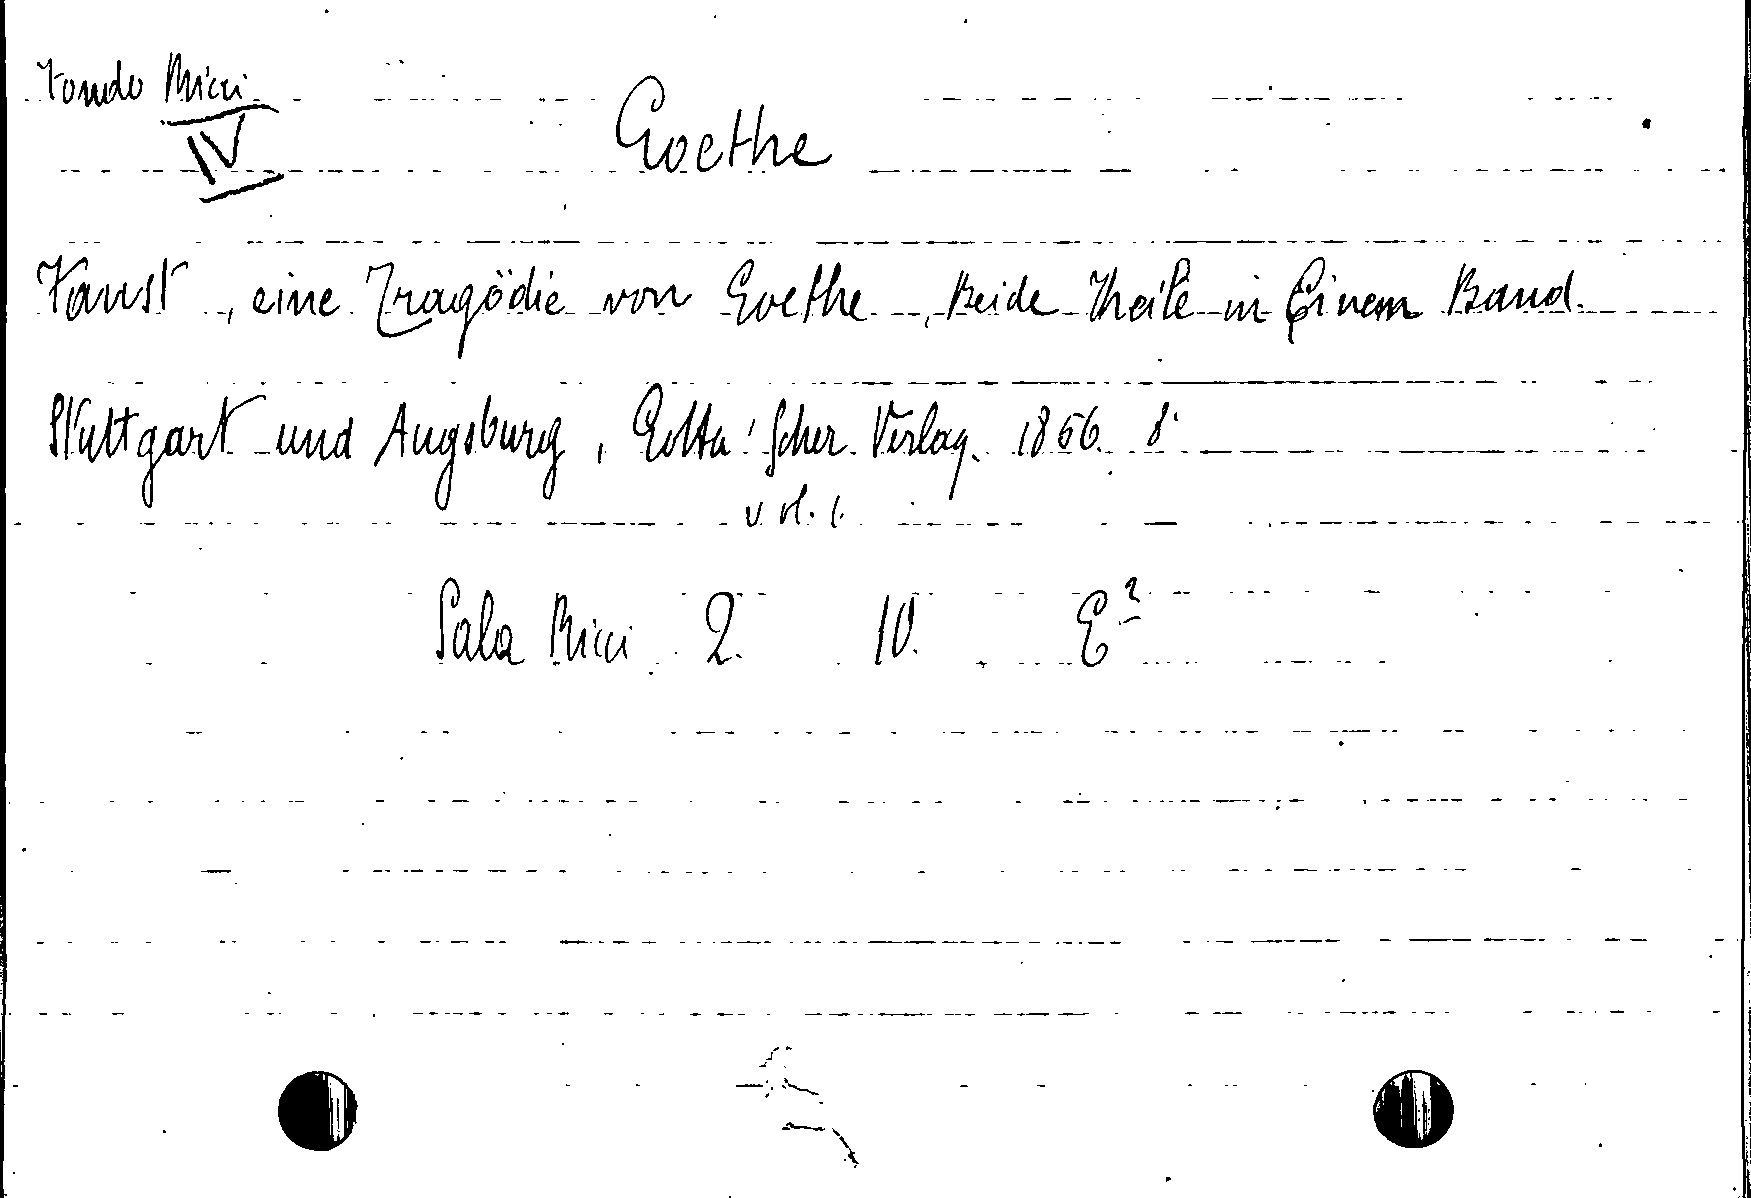 Fondo Ricci
IV
Goethe
Faust, eine Tragödie von Goethe, Beide Theile in Einem Band.
Stuttgart und Augsburg, Cotta'scher Verlag. 1856. 8°
vol. 1.
Sala Ricci 2. 10. E²